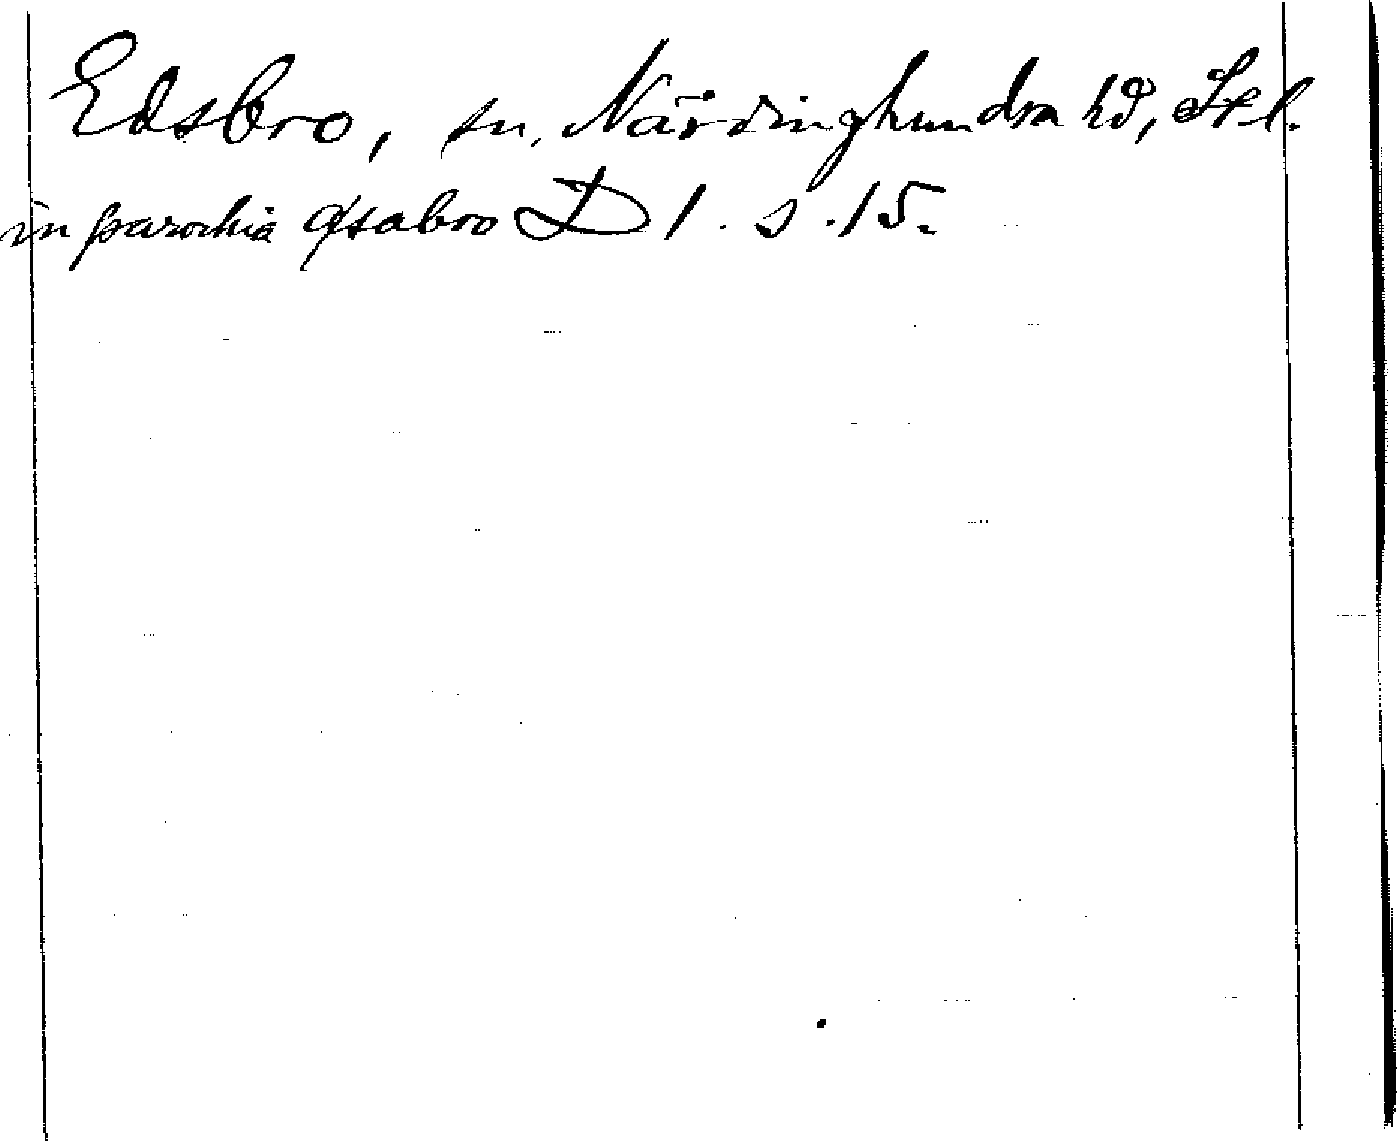 Edsbro, sn, Närdinghundra hd, Stl.
in parochia Øsabro D 1. s. 15.